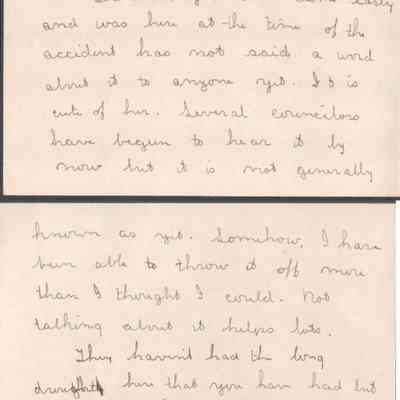 easly
and was here at the time of the
accident has not said a word
about it to anyone yet. It is
cute of her. Several councilors
have begun to hear it by
now but it is not generally
known as yet. Somehow, I have
been able to throw it off more
than I thought I could. Not
talking about it helps lots.
They haven't had the long
here that you have had but